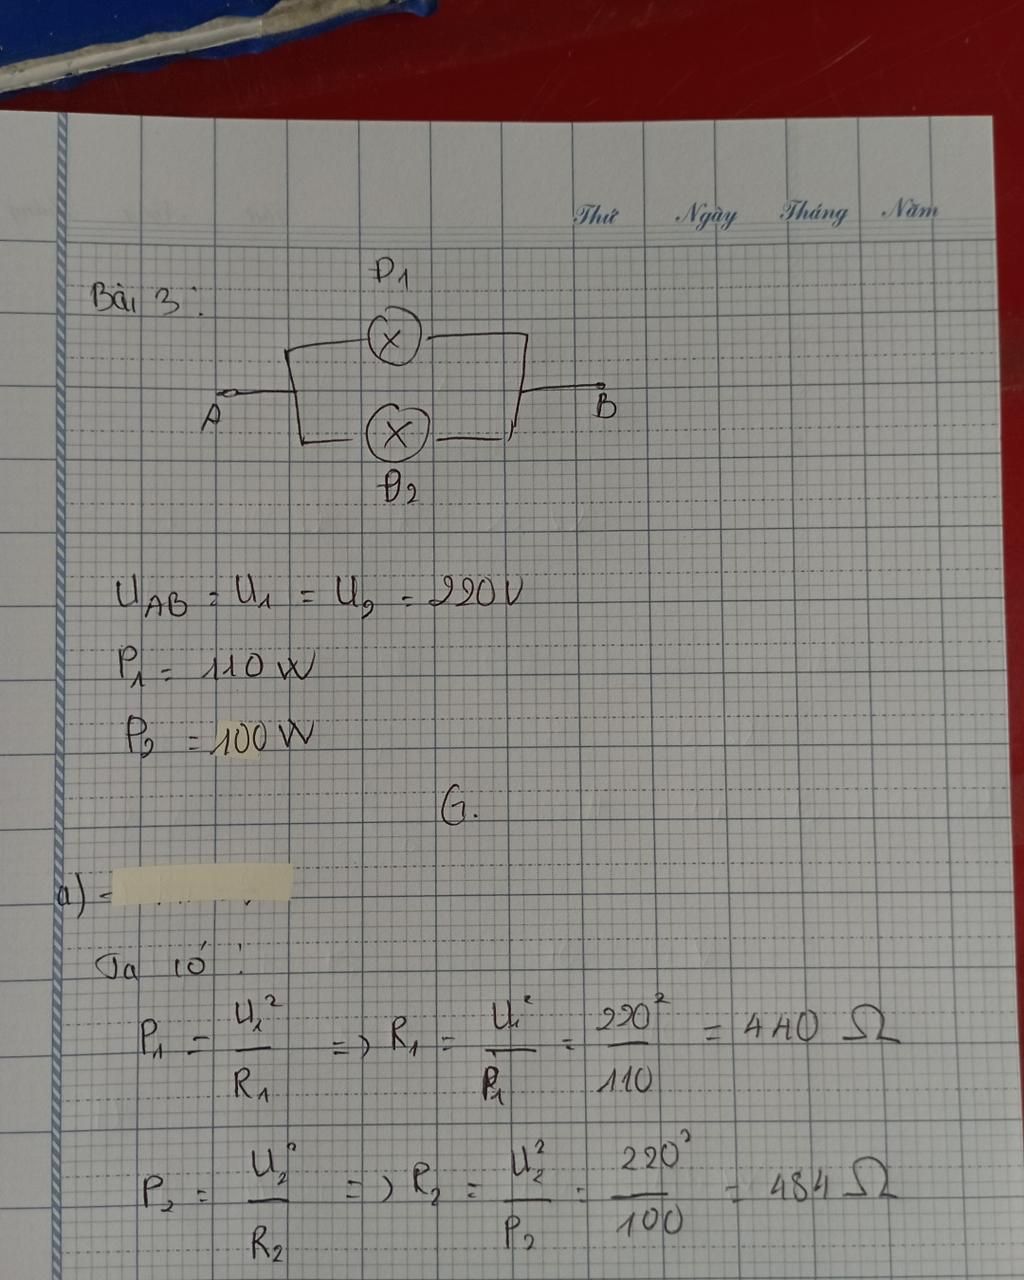 Thứ Ngày Tháng Năm
Bài 3:
Đ1
A
B
Đ2
U_AB = U_1 = U_2 = 220V
P_1 = 110 W
P_2 = 100 W
G.
a) -
Ta có:
P_1 = U_1² / R_1 => R_1 = U_1² / P_1 = 220² / 110 = 440 Ω
P_2 = U_2² / R_2 => R_2 = U_2² / P_2 = 220² / 100 = 484 Ω